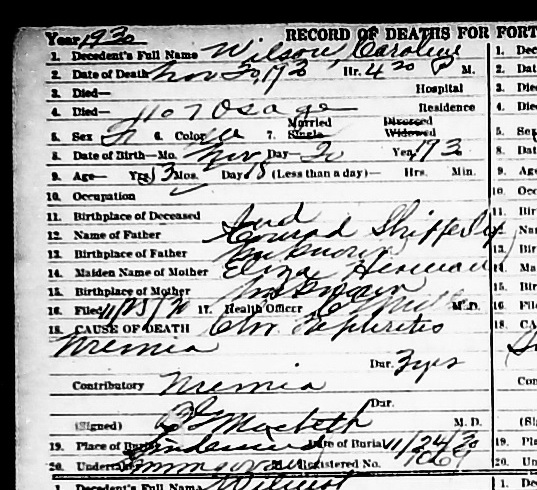 Year 1930 RECORD OF DEATHS FOR FORT
1. Decedent's Full Name Wilson, Caroline
2. Date of Death Nov 20, 1930 Hr. 4 20 P M.
3. Died— Hospital
4. Died— 1107 Osage Residence
5. Sex F 6. Color W 7. Married Single Divorced Widowed
8. Date of Birth—Mo. Nov Day— 2 Yea
9. Age— Yrs. Mos. Day 18 (Less than a day)— Hrs. Min.
10. Occupation
11. Birthplace of Deceased Ind
12. Name of Father Conrad
13. Birthplace of Father Unknown
14. Maiden Name of Mother Eliza
15. Birthplace of Mother Unknown
16. Filed 11/25/30 17. Health Officer M.D.
18. CAUSE OF DEATH Chr Nephritis
Uremia
Dur. 3 yrs
Contributory Uremia
Dur.
(Signed) Macbeth M. D.
19. Place of Burial Lindenwood Date of Burial 11/24/30
20. Undertaker Registered No. 1069
1. Decedent's Full Name
1. Dece
2. Dat
3. Die
4. Die
5. Se
8. Dat
9. Ag
10. Occ
11. Birt
12. Na
13. Birt
14. Ma
15. Birt
16. File
18. CA
Con
(Sig
19. Pla
20. Un
1. Dec